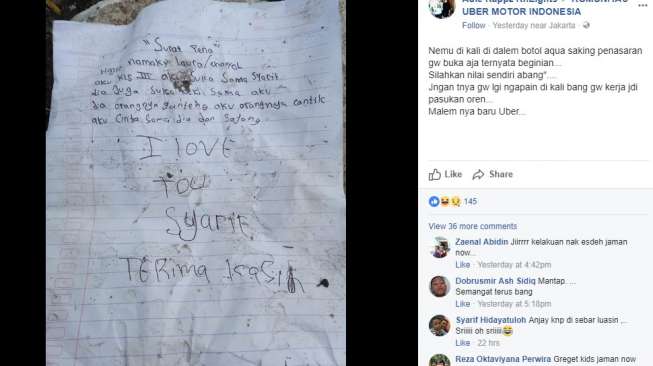 "Surat Pena"
namaku Laura/chanok
aku kls III aku suka sama Syarif
dia juga suka sama aku
dia orangnya ganteng aku orangnya cantik
aku cinta sama dia dan sayang
I LOVE
YOU
Syarif
TERIMA KASIH
UBER MOTOR INDONESIA
Follow · Yesterday near Jakarta ·
Nemu di kali di dalem botol aqua saking penasaran
gw buka aja ternyata beginian...
Silahkan nilai sendiri abang"....
Jngan tnya gw lgi ngapain di kali bang gw kerja jdi
pasukan oren...
Malem nya baru Uber...
Like Share
145
View 36 more comments
Zaenal Abidin Jiirrrr kelakuan nak esdeh jaman
now...
Like · Yesterday at 4:42pm
Dobrusmir Ash Sidiq Mantap....
Semangat terus bang
Like · Yesterday at 5:18pm
Syarif Hidayatuloh Anjay knp di sebar luasin ,..
Sriiiii oh sriiiii
Like · 22 hrs
Reza Oktaviyana Perwira Greget kids jaman now